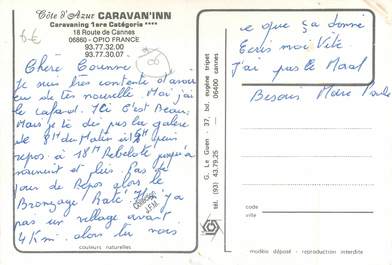 Côte d'Azur CARAVAN'INN
Caravaning 1ère Catégorie ****
18 Route de Cannes
06650 - OPIO FRANCE
93.77.32.00
93.77.30.07
6€
06
Chère
Je suis très contente d'avoir
eu de tes nouvelle Moi j'ai
le cafard. Ici C'est Beau,
Mais je te dis pas la galère
de 8H du Matin à puis
repos à 18H Rebelote jusqu'à
et plus. Pas de
jour de Repos alors le
Bronzage Raté. Il y a
pas un village avant
4 Km. alors tu vois
couleurs naturelles
G. Le Guen - 37, bd. eugène tripet
tél. (93) 43.79.25 06400 cannes
ce que ça donne
Ecris moi Vite
J'ai pas le Moral
Besois Marie Paule
code
ville
modèle déposé - reproduction interdite